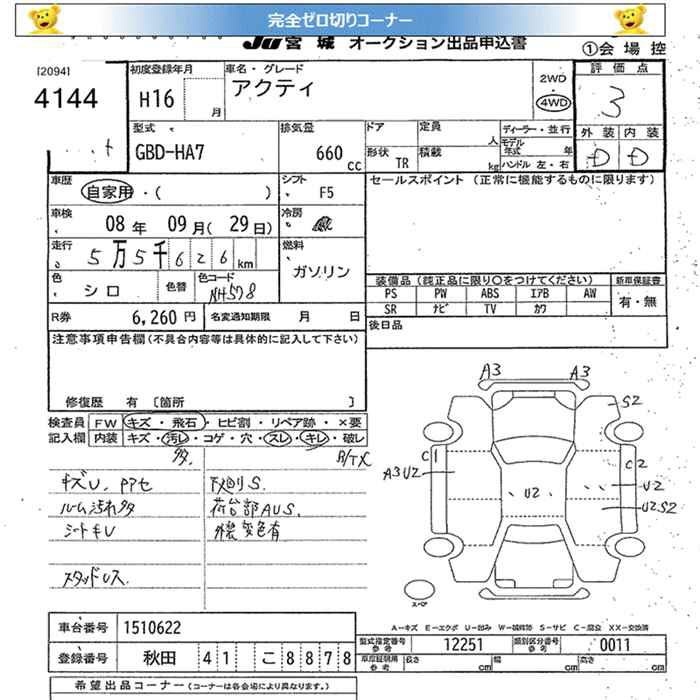 完全ゼロ切りコーナー
JU 宮城 オークション出品申込書
①会場控
[2094]
4144
初度登録年月
H16
月
車名・グレード
アクティ
2WD
・
4WD
評価点
3
外装 内装
D D
型式
GBD-HA7
排気量
660 cc
ドア
定員
人
形状
TR
積載
kg
ディーラー・並行
モデル年式 年
ハンドル 左・右
車歴
自家用・( )
シフト
F5
セールスポイント (正常に機能するものに限ります)
車検
08年 09月(29日)
冷房
走行
5万5千626km
燃料
ガソリン
色
シロ
色替
色コード
NH578
装備品(純正品に限り○をつけてください)
新車保証書
PS PW ABS エアB AW
有・無
SR ナビ TV カワ
R券 6,260円
名変通知期限 月 日
後日品
注意事項申告欄(不具合内容等は具体的に記入して下さい)
修復歴 有 [箇所 ]
検査員 FW キズ・飛石・ヒビ割・リペア跡・×要
記入欄 内装 キズ・汚レ・コゲ・穴・スレ・キレ・破レ
多
キズU. PPセ
下廻りS.
ルーム汚れ多
荷台部AUS.
シートキU
外装変色有
スタッドレス.
A3 A3
S2
C1 C2
A3U2
U2
U2
U2S2
スペア
A-キズ E-エクボ U-凹み W-補修跡 S-サビ C-腐食 XX-交換済
車台番号 1510622
型式指定番号 参考 12251
類別区分番号 参考 0011
登録番号 秋田 41 こ 8878
車庫証明用 参考 長さ cm 幅 cm 高さ cm
希望出品コーナー(コーナーは各会場により異なります。)